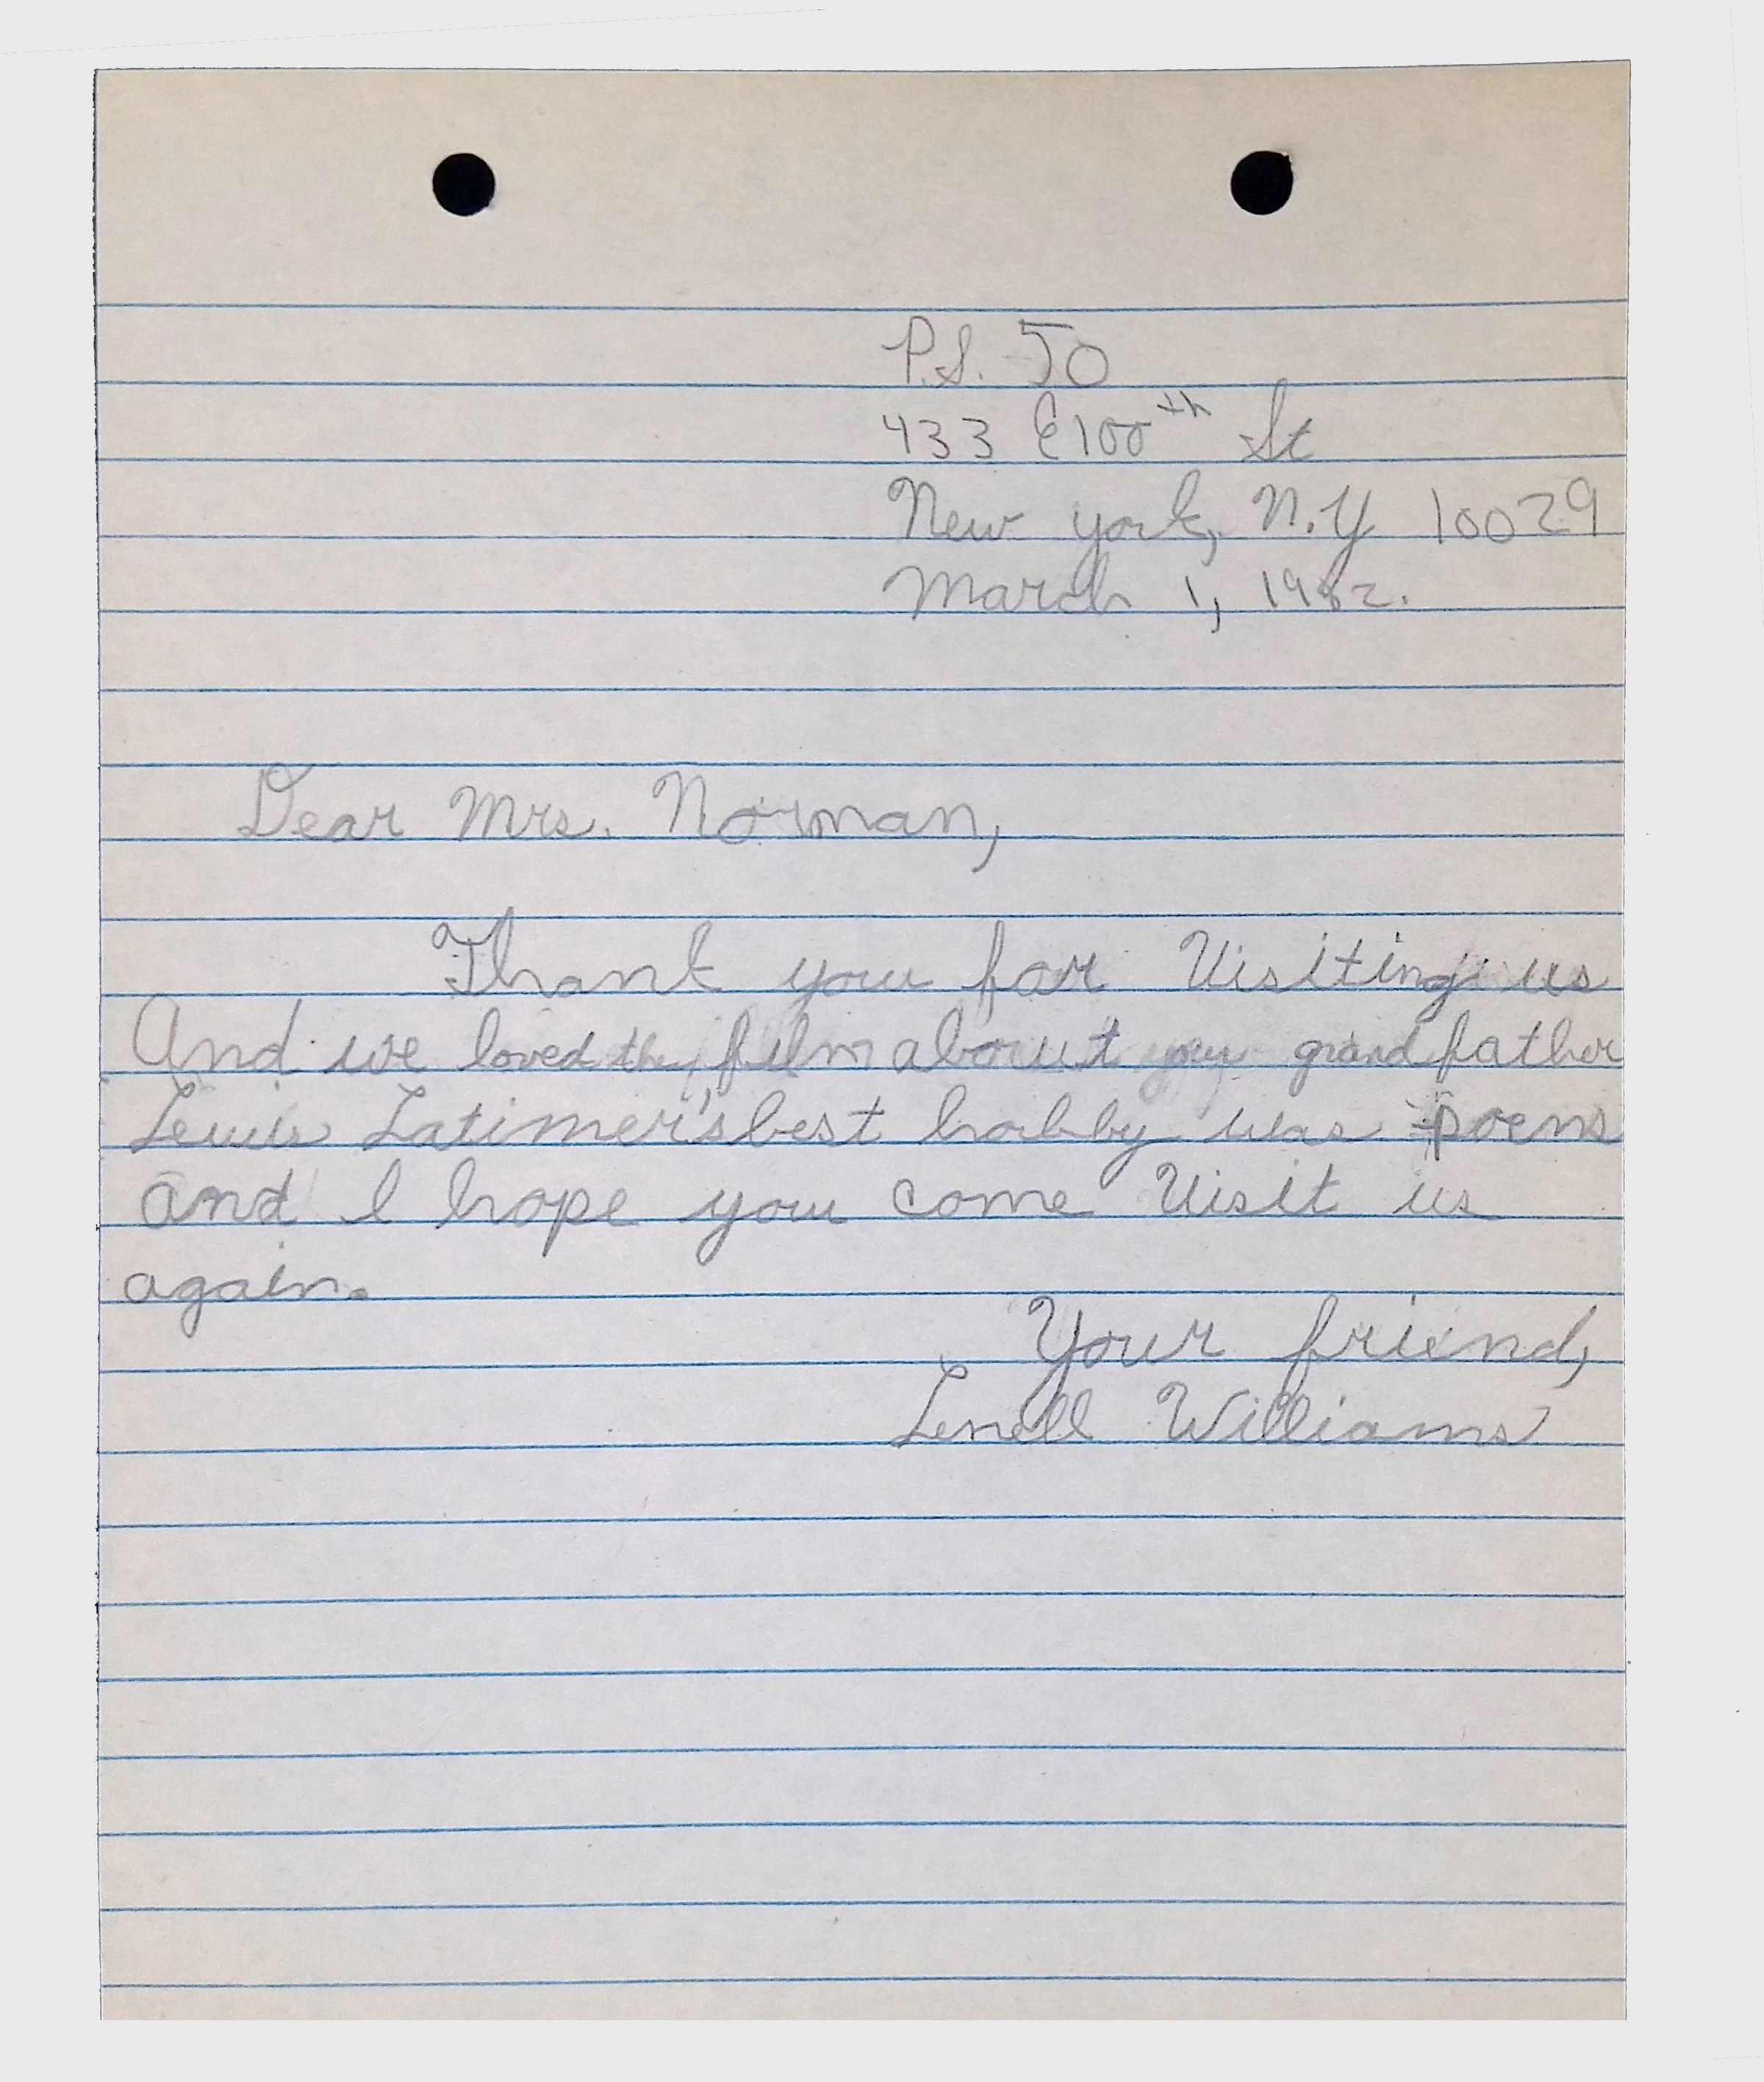 P.S. 50
433 E 100th St
New york, N.Y 10029
March 1, 1982.
Dear Mrs. Norman,
Thank you for Visiting us
And we loved the film about your grandfather
Lewis Latimer's best hobby was poems
and I hope you come Visit us
again.
Your friend,
Lenell Williams